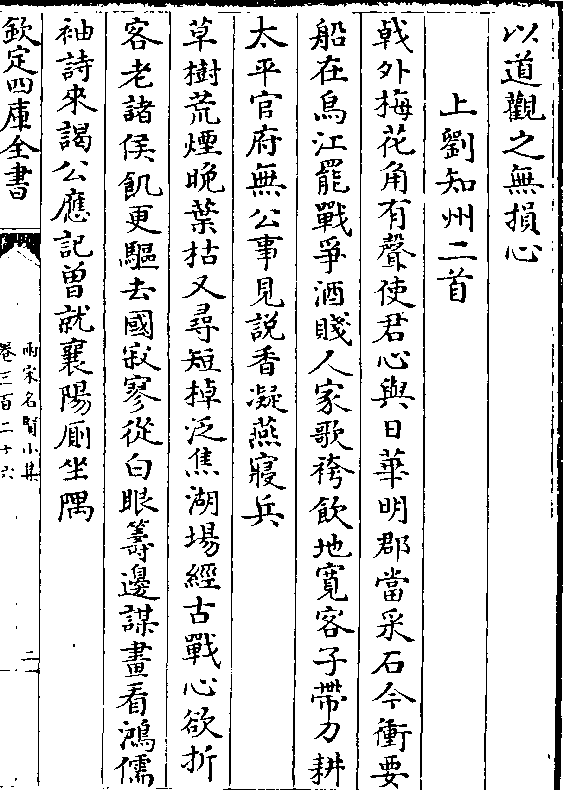 以道觀之無損心
上劉知州二首
戟外梅花角有聲使君心與日華明郡當采石今衝要
船在烏江罷戰爭酒賤人家歌袴飲地寛客子帶刀耕
太平官府無公事見説香凝燕寢兵
草樹荒煙晩葉枯又尋短棹泛焦湖場經古戰心欲折
客老諸侯飢更驅去國寂寥從白眼籌邊謀畫看鴻儒
袖詩來謁公應記曽就襄陽厠坐隅
欽定四庫全書
兩宋名賢小集
卷三百二十六
二